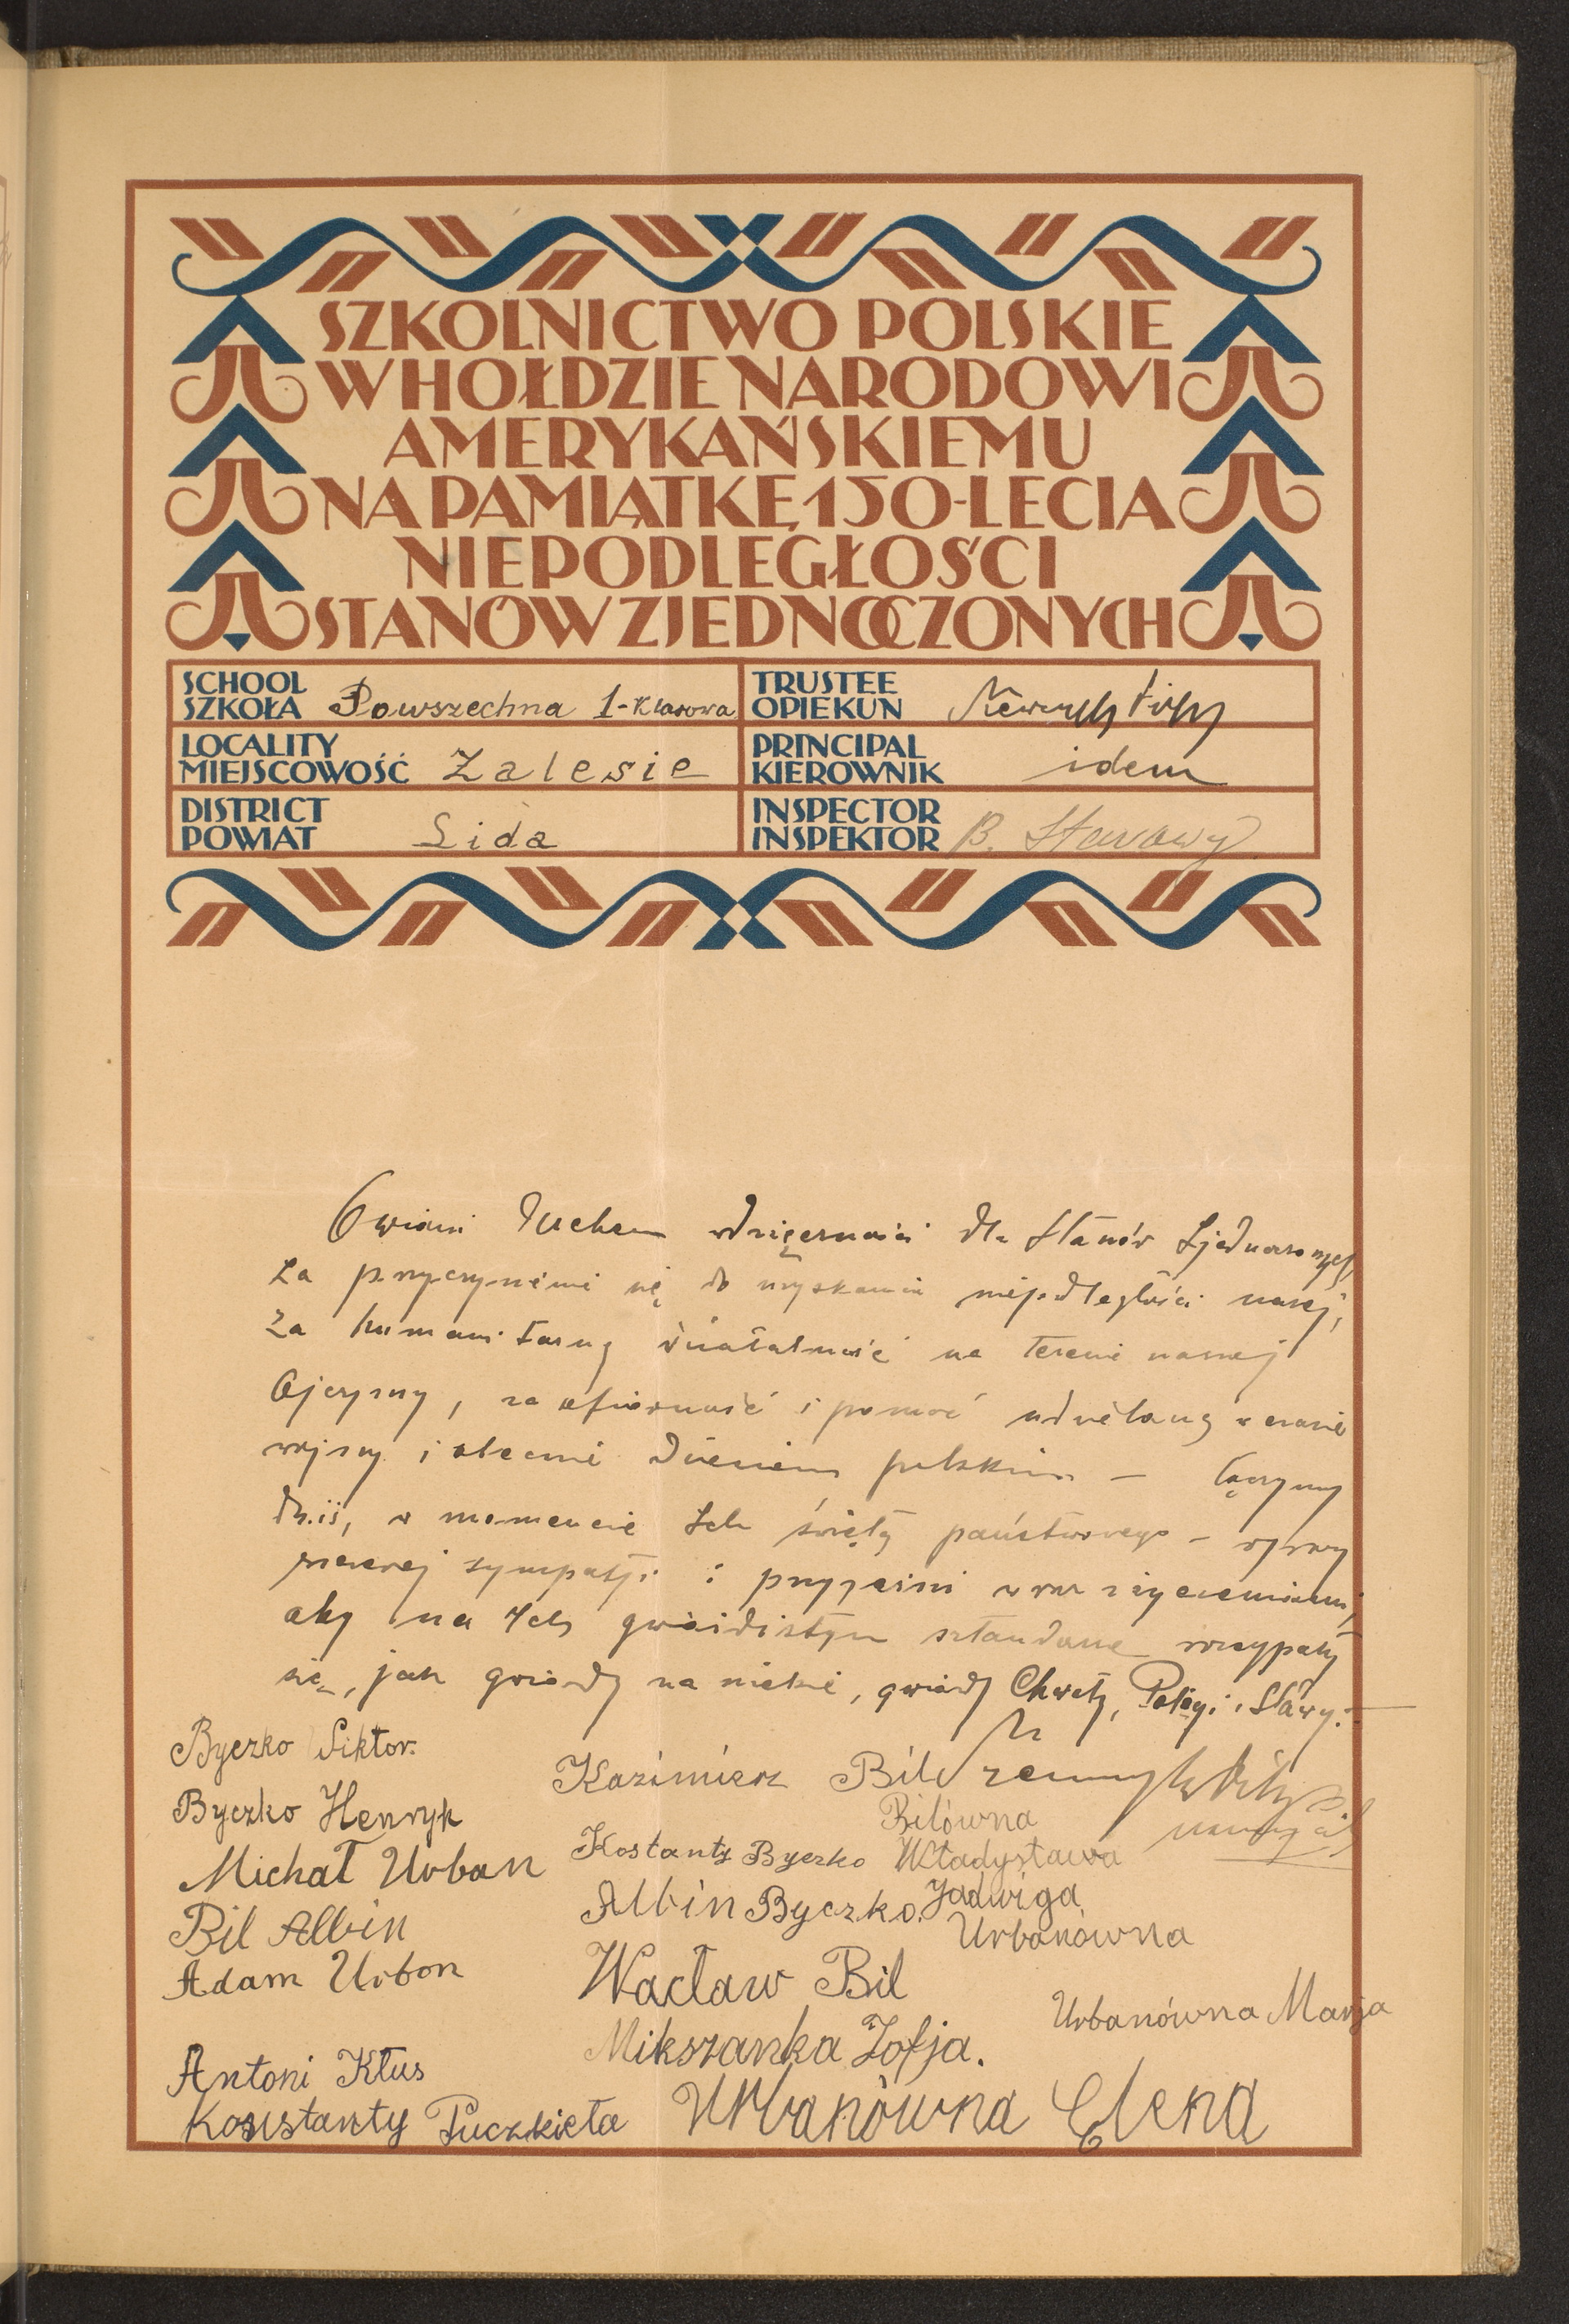 SZKOLNICTWO POLSKIE
W HOŁDZIE NARODOWI
AMERYKAŃSKIEMU
NA PAMIĄTKĘ 150-LECIA
NIEPODLEGŁOŚCI
STANÓW ZJEDNOCZONYCH
SCHOOL
SZKOŁA Powszechna 1-klasowa
TRUSTEE
OPIEKUN
LOCALITY
MIEJSCOWOŚĆ Zalesie
PRINCIPAL
KIEROWNIK idem
DISTRICT
POWIAT Lida
INSPECTOR
INSPEKTOR B. Starowy
Owiani duchem wdzięczności dla Stanów Zjednoczonych
za przyczynienie się do uzyskania niepodległości naszej,
za humanitarną działalność na terenie naszej
Ojczyzny, za ofiarność i pomoc udzielaną w czasie
wojny i obecnie dzieciom polskim — łączymy
dziś, w momencie Ich święta państwowego - wyrazy
szczerej sympatji i przyjaźni wraz z życzeniami,
aby na Ich gwiaździstym sztandarze rozsypały
się, jak gwiazdy na niebie, gwiazdy Chwały, Potęgi i Sławy. —
Byczko Wiktor.
Byczko Henryk
Michał Urban
Bil Albin
Adam Urban
Antoni Kłus
Konstanty Puczkieła
Kazimierz Bil
Kostanty Byczko
Albin Byczko.
Wacław Bil
Mikszanka Zofja.
Urbanówna Elena
Bilówna
Władysława
Jadwiga
Urbanówna
Urbanówna Marja